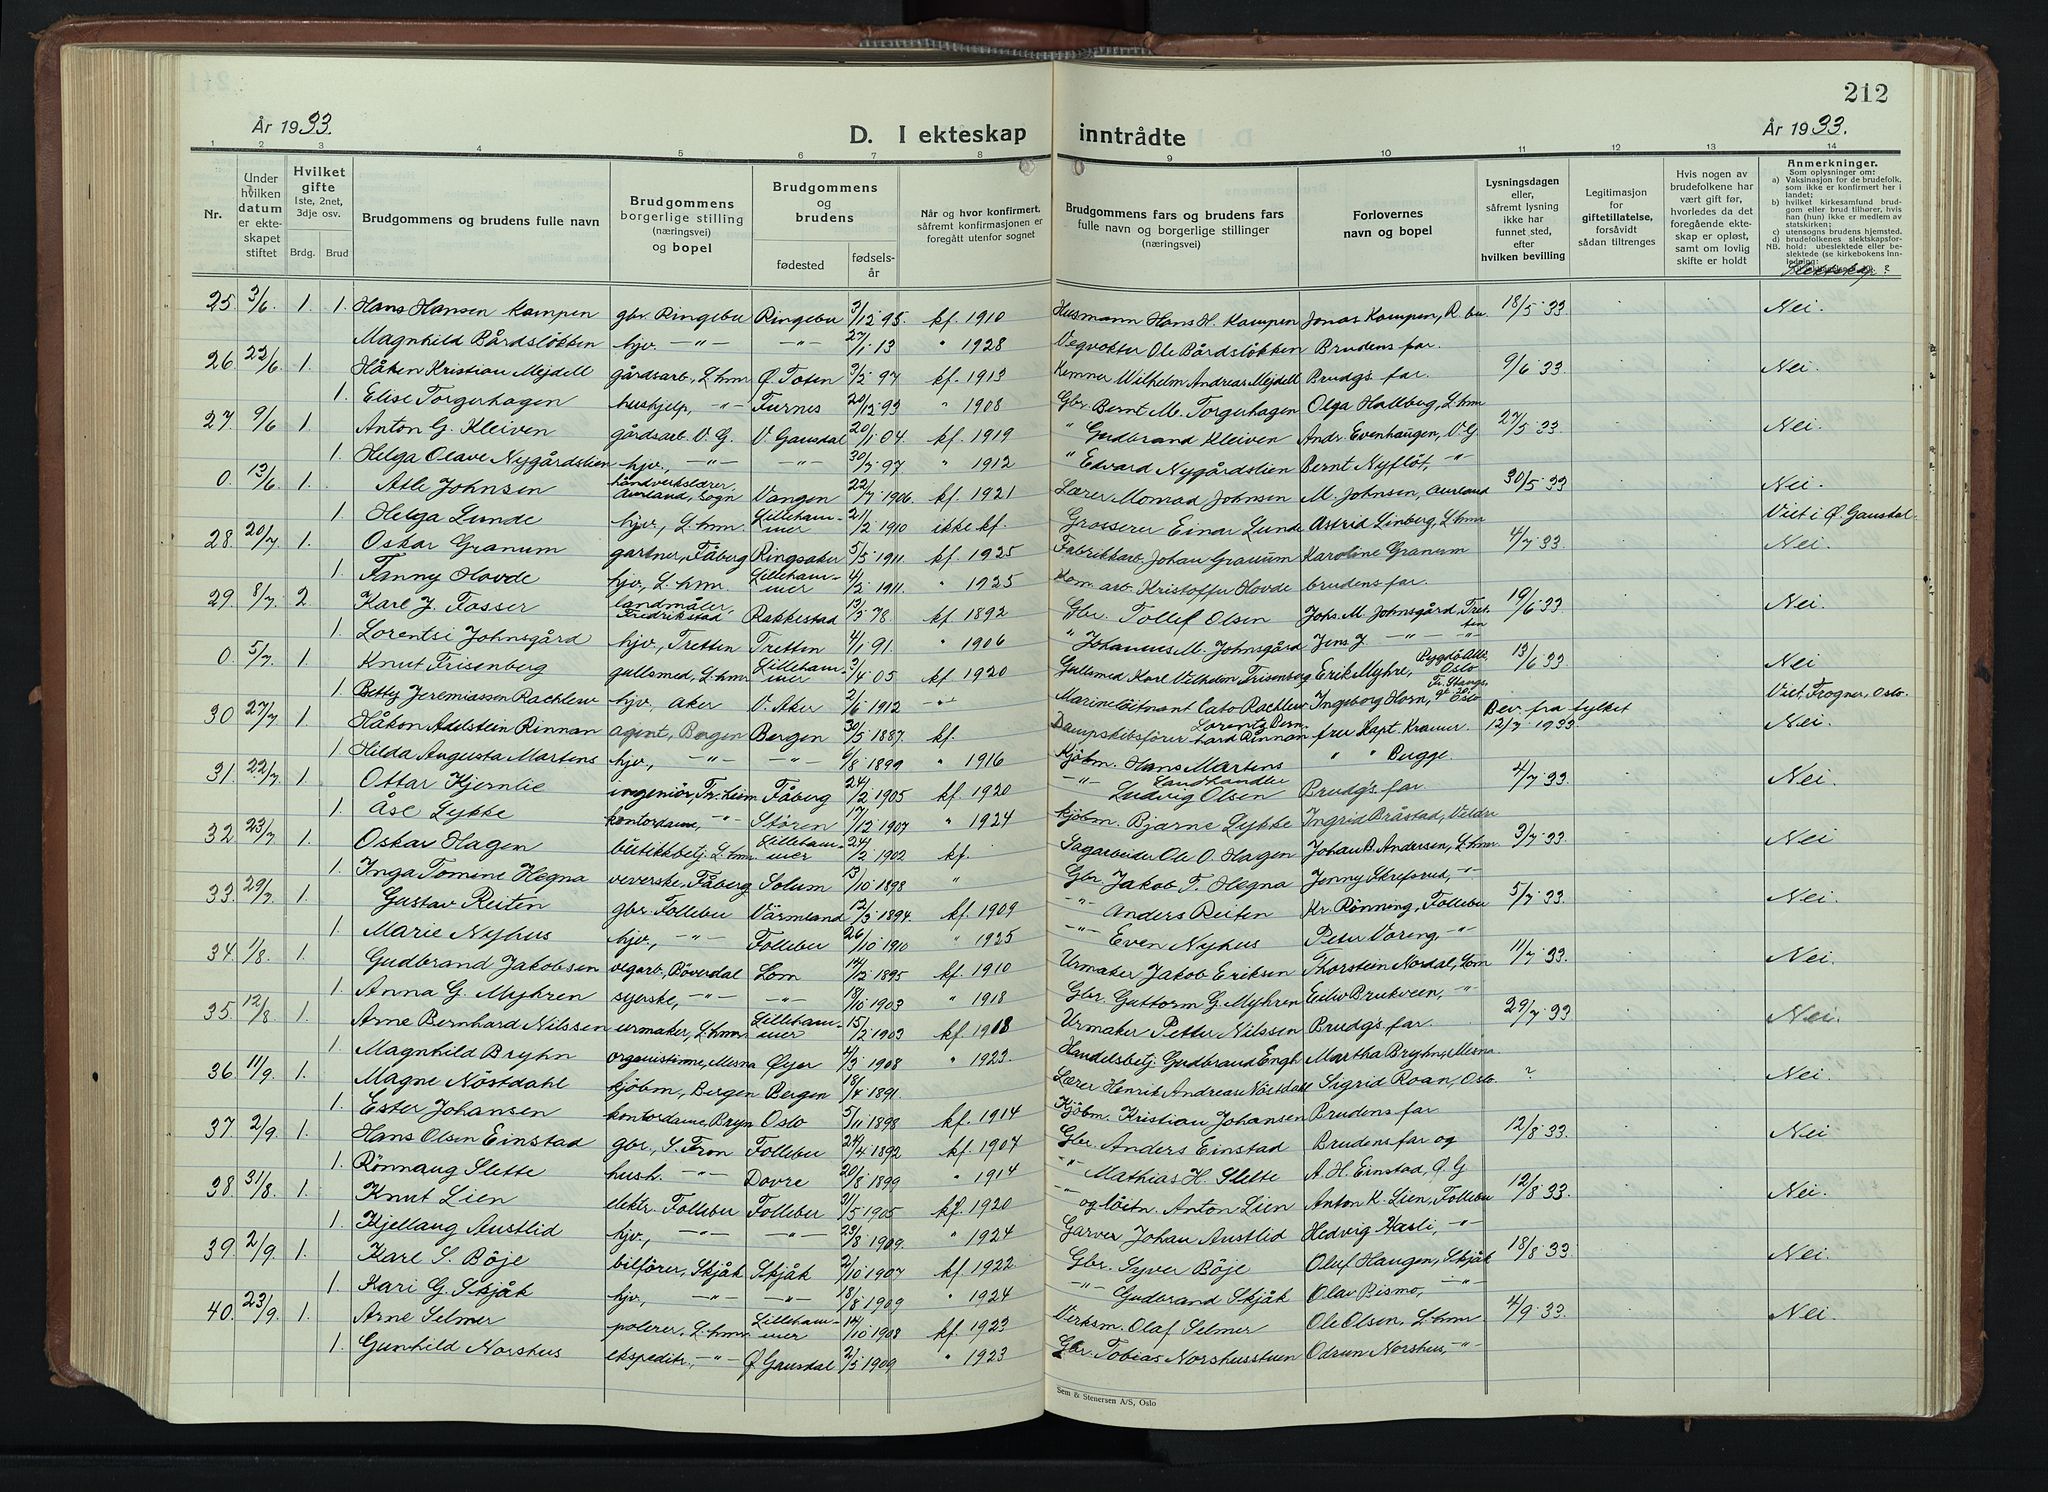 År 1933.
D. I ekteskap
inntrådte
212
År 1933.
1 2 3 4 5 6 7 8 9 10 11 12 13 14
Nr.
Under hvilken datum er ekteskapet stiftet
Hvilket gifte 1ste, 2net, 3dje osv.
Brdg. Brud
Brudgommens og brudens fulle navn
Brudgommens borgerlige stilling (næringsvei) og bopel
Brudgommens og brudens
fødested
fødselsår
Når og hvor konfirmert, såfremt konfirmasjonen er foregått utenfor sognet
Brudgommens fars og brudens fars fulle navn og borgerlige stillinger (næringsvei)
Forlovernes navn og bopel
Lysningsdagen eller, såfremt lysning ikke har funnet sted, efter hvilken bevilling
Legitimasjon for giftetillatelse, forsåvidt sådan tiltrenges
Hvis nogen av brudefolkene har vært gift før, hvorledes da det foregående ekteskap er opløst, samt om lovlig skifte er holdt
Anmerkninger.
Som oplysninger om:
a) Vaksinasjon for de brudefolk, som ikke er konfirmert her i landet;
b) hvilket kirkesamfund brudgom eller brud tilhører, hvis han (hun) ikke er medlem av statskirken;
c) utensogns brudens hjemsted.
d) brudefolkenes slektskapsforhold: ubeslektede eller beslektede (se kirkebokens innledning:
NB.
Slektskap?
25 3/6 1. Hans Hansen Kampen gbr. Ringebu Ringebu 3/12 95. kf. 1910 Husmann Hans H. Kampen Jonas Kampen, R.bu 18/5 33. Nei.
1. Magnhild Bårdsløkken hjv. -"- -"- 27/1 13 " 1928 Vegvokter Ole Bårdsløkken Brudens far.
26 22/6 1. Håken Kristian Mejdell gårdsarb., L.hmr Ø. Toten 3/2 97 kf. 1913 Kemner Wilhelm Andreas Mejdell Brudg's far. 9/6 33. Nei.
1. Elise Torgerhagen hushjelp, -"- Furnes 20/12 93 " 1908 Gbr. Bernt M. Torgerhagen Olga Hallberg, L.hmr
27. 9/6 1. Anton G. Kleiven gårdsarb. V.G. V. Gausdal 20/1 04. kf. 1919 " Gudbrand Kleiven Andr. Evenhaugen, V.G. 27/5 33. Nei.
1. Helga Olave Nygårdslien hjv., -"- -"- 30/7 97 " 1912 " Edvard Nygårdslien Bernt Nyflöt, -"-
0. 13/6 1. Atle Johnsen håndverkslærer, Aurland, Sogn Vangen 22/7 1906. kf. 1921 Lærer Momad Johnsen M. Johnsen, Aurland 30/5 33 Nei.
1. Helga Lunde hjv., L.hmr. Lillehammer 21/2 1910 ikke kf. Grosserer Einar Lunde Astrid Linberg, L.hmr Viet i Ø. Gausdal.
28. 20/7 1. Oskar Granum gartner, Fåberg Ringsaker 5/5 1911. kf. 1925 Fabrikkarb. Johan Granum Karoline Granum 4/7 33. Nei.
1. Fanny Hovde hjv., L.hmr. Lillehammer 4/2 1911. " 1925 Kom.arb. Kristoffer Hovde brudens far.
29. 8/7 2. Karl J. Fosser landmåler, Fredrikstad Rakkestad 13/3 78 kf. 1892 Gbr. Tollef Olsen Johs. M. Johnsgård, Tretten 19/6 33. Nei.
1. Lorentsi Johnsgård hjv., Tretten Tretten 4/1 91. " 1906 " Johannes M. Johnsgård Jens J. -"- -"-
0 5/7 1. Knut Frisenberg gullsmed, L.hmr. Lillehammer 3/4 05 kf. 1920 Gullsmed Karl Vilhelm Frisenberg Erik Myhre, Bygdø Allé, Oslo 13/6 33. Nei
1. Betty Jeremiassen Rachlew hjv., Aker V. Aker 2/6 1912 -"- Marineløitnant Cato Rachlew Ingeborg Horn, Fr. Stangs gt. 20, Oslo Viet Frogner, Oslo.
30 27/7 1. Håkon Adelstein Rinnan agent, Bergen Bergen 30/5 1887. kf. Dampskibsfører Lorentz Bernhard Rinnan frue Kapt. Kramer. Bev. fra fylket 12/7 1933 Nei.
1. Hilda Augusta Martens hjv., -"- -"- 6/8 1899 " 1916 Kjöbm. Hans Martens " " Bugge.
31. 22/7 1. Ottar Kjernlie ingeniør, Tr.heim Fåberg 24/2 1905 kf. 1920 -"- Landhandler Ludvig Olsen Brudg's far 4/7 33. Nei.
1. Åse Lykke kontordame, -"- Stören 17/12 1907 " 1924 Kjöbm. Bjarne Lykke Ingrid Bråstad, Veldre
32 23/7 1. Oskar Hagen butikkbetj. L.hmr. Lillehammer 24/2 1902 kf. Sagarbeider Ole O. Hagen Johan B. Andersen, L.hmr. 3/7 33. Nei
1. Inga Tomine Hegna veverske, Fåberg Solum 13/10 1898 " Gbr. Jakob T. Hegna Jenny Skrefsrud, -"-
33. 29/7 1. Gustav Reiten gbr. Follebu Värmland 12/3 1894. kf. 1909 -"- Anders Reiten Kr. Rönning, Follebu 5/7 33. Nei.
1. Marie Nyhus hjv., -"- Follebu 26/10 1910 " 1925 -"- Even Nyhus Peter Voreng, -"-
34 1/8 1. Gudbrand Jakobsen vegarb., Böverdal Lom 14/12 1895 kf. 1910 Urmaker Jakob Eriksen Thorstein Nordal, Lom 11/7 33. Nei.
1. Anna G. Myhren syerske, -"- -"- 18/10 1903 " 1918 Gbr. Guttorm G. Myhren Eiliv Brukveen, -"-
35. 12/8 1. Arne Bernhard Nilssen urmaker, L.hmr. Lillehammer 15/2 1903 kf. 1918 Urmaker Petter Nilssen Brudg's far. 29/7 33 Nei.
1. Magnhild Bryhn organistinne, Mesna Øyer 4/3 1908 " 1923. Handelsbetj. Gudbrand Engh Martha Bryhn, Mesna
36 11/9 1. Magne Nöstdahl kjöbm., Bergen Bergen 18/4 1891. Lærer Henrik Andreas Nöstdahl Sigrid Roan, Oslo. ? Nei.
1. Ester Johansen kontordame, Bryn Oslo 5/11 1898 kf. 1914 Kjöbm. Kristian Johansen Brudens far
37. 2/9 1. Hans Olsen Einstad gbr., S. Fron Follebu 24/4 1892 kf. 1907 Gbr. Anders Einstad Brudens far og 12/8 33. Nei
1. Rönnaug Slette hush. -"- Dovre 20/8 1899 " 1914 -"- Mathias H. Slette A. H. Einstad, Ø. G
38 31/8 1. Knut Lien elektr. Follebu Follebu 21/5 1905 kf. 1920 -"- og löitn. Anton Lien Anton K. Lien, Follebu 12/8 33. Nei.
1. Kjellaug Austlid hjv., -"- -"- 23/8 1909. " 1924 Garver Johan Austlid Hedvig Hasli, -"-
39 2/9 1. Karl S. Böje bilfører, Skjåk Skjåk 2/10 1907 kf. 1922 Gbr. Syver Böje Oluf Haugen, Skjåk 18/8 33. Nei
1. Kari G. Skjåk hjv., -"- -"- 18/8 1909 " 1924 -"- Gudbrand Skjåk Olav Bismo, -"-
40. 23/9 1. Arne Selmer polerer, L.hmr. Lillehammer 14/10 1908 kf. 1923 Verksm. Olaf Selmer Ole Olsen, L.hmr 4/9 33. Nei.
1. Gunhild Norshus ekspeditr., -"- Ø. Gausdal 2/5 1909 " 1923 Gbr. Tobias Norshusstuen Odrun Norshus, -"-
Sem & Stenersen A/S, Oslo